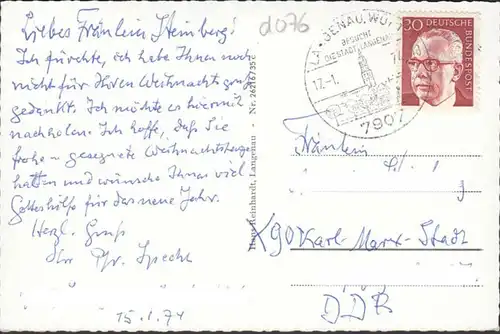 Liebes Fräulein Steinberg!
Ich fürchte, ich habe Ihnen noch
nicht für Ihren Weihnachtsgruß
gedankt. Ich möchte es hiermit
nachholen. Ich hoffe, daß Sie
frohe u. gesegnete Weihnachtstage
hatten und wünsche Ihnen viel
Gotteshilfe für das neue Jahr.
Herzl. Gruß
Ihr Pfr. Specht
15.1.74
d076
Hans Reinhardt, Langenau - Nr. 2616/7359
LANGENAU, WÜRTT
BESUCHT
DIE STADT LANGENAU
17.-1.
74
7907
30
DEUTSCHE
BUNDESPOST
Fräulein
X90 Karl-Marx-Stadt
DDR